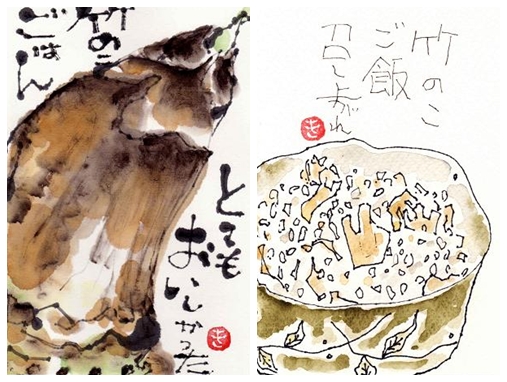 竹のこ
ごはん
とても
おいしかった
き
竹のこ
ご飯
召し上がれ
き